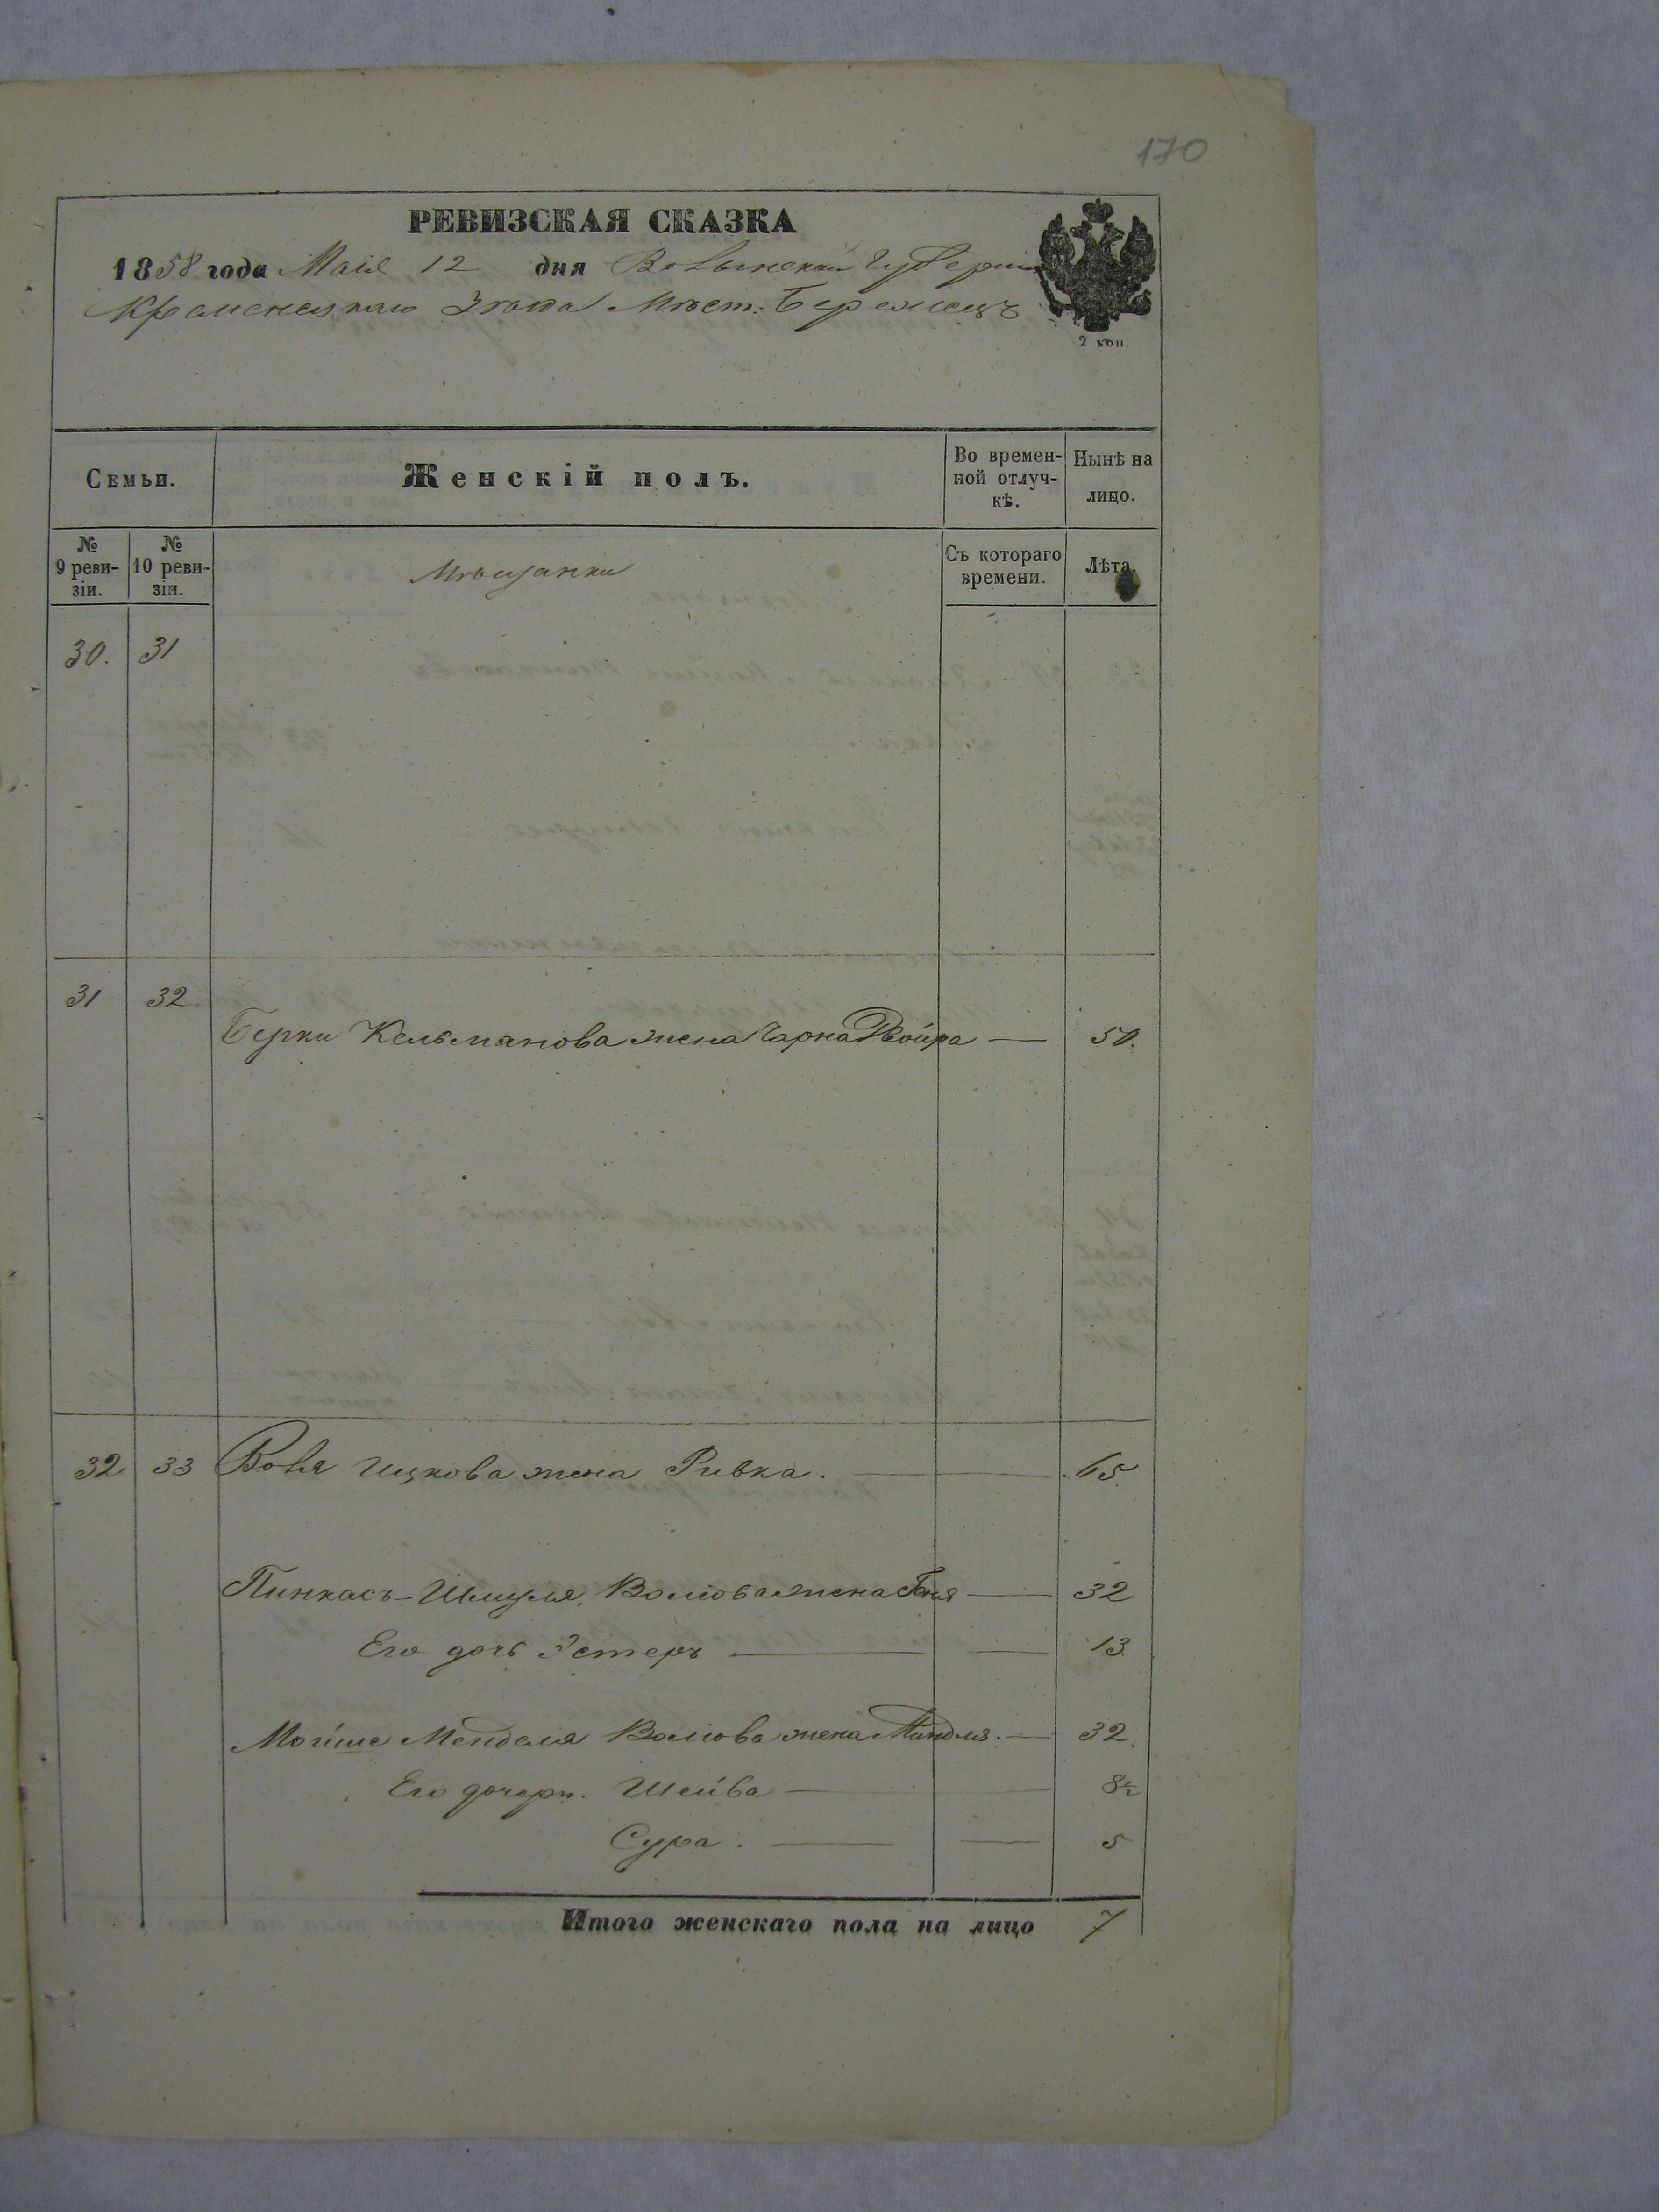 170
РЕВИЗСКАЯ СКАЗКА
1858 года Маія 12 дня Волынской Губерніи
Кременецкаго Уѣзда Мѣст. Бережецъ
2 коп.
Семьи.
Женскій полъ.
Во времен-
ной отлуч-
кѣ.
Нынѣ на
лицо.
№
9 реви-
зіи.
№
10 реви-
зіи.
Мѣщанки
Съ котораго
времени.
Лѣта.
30. 31
31 32
Берки Кельманова жена Чарна Двойра — 50.
32 33 Вольъ Ицкова жена Ривка. — 65.
Пинкасъ-Шмуля Волькова жена Геня — 32
Его дочь Эстеръ — 13.
Мойше Менделя Волькова жена Миндля. — 32.
Его дочери. Шейва — 8½
Сура. — 5
Итого женскаго пола на лицо 7